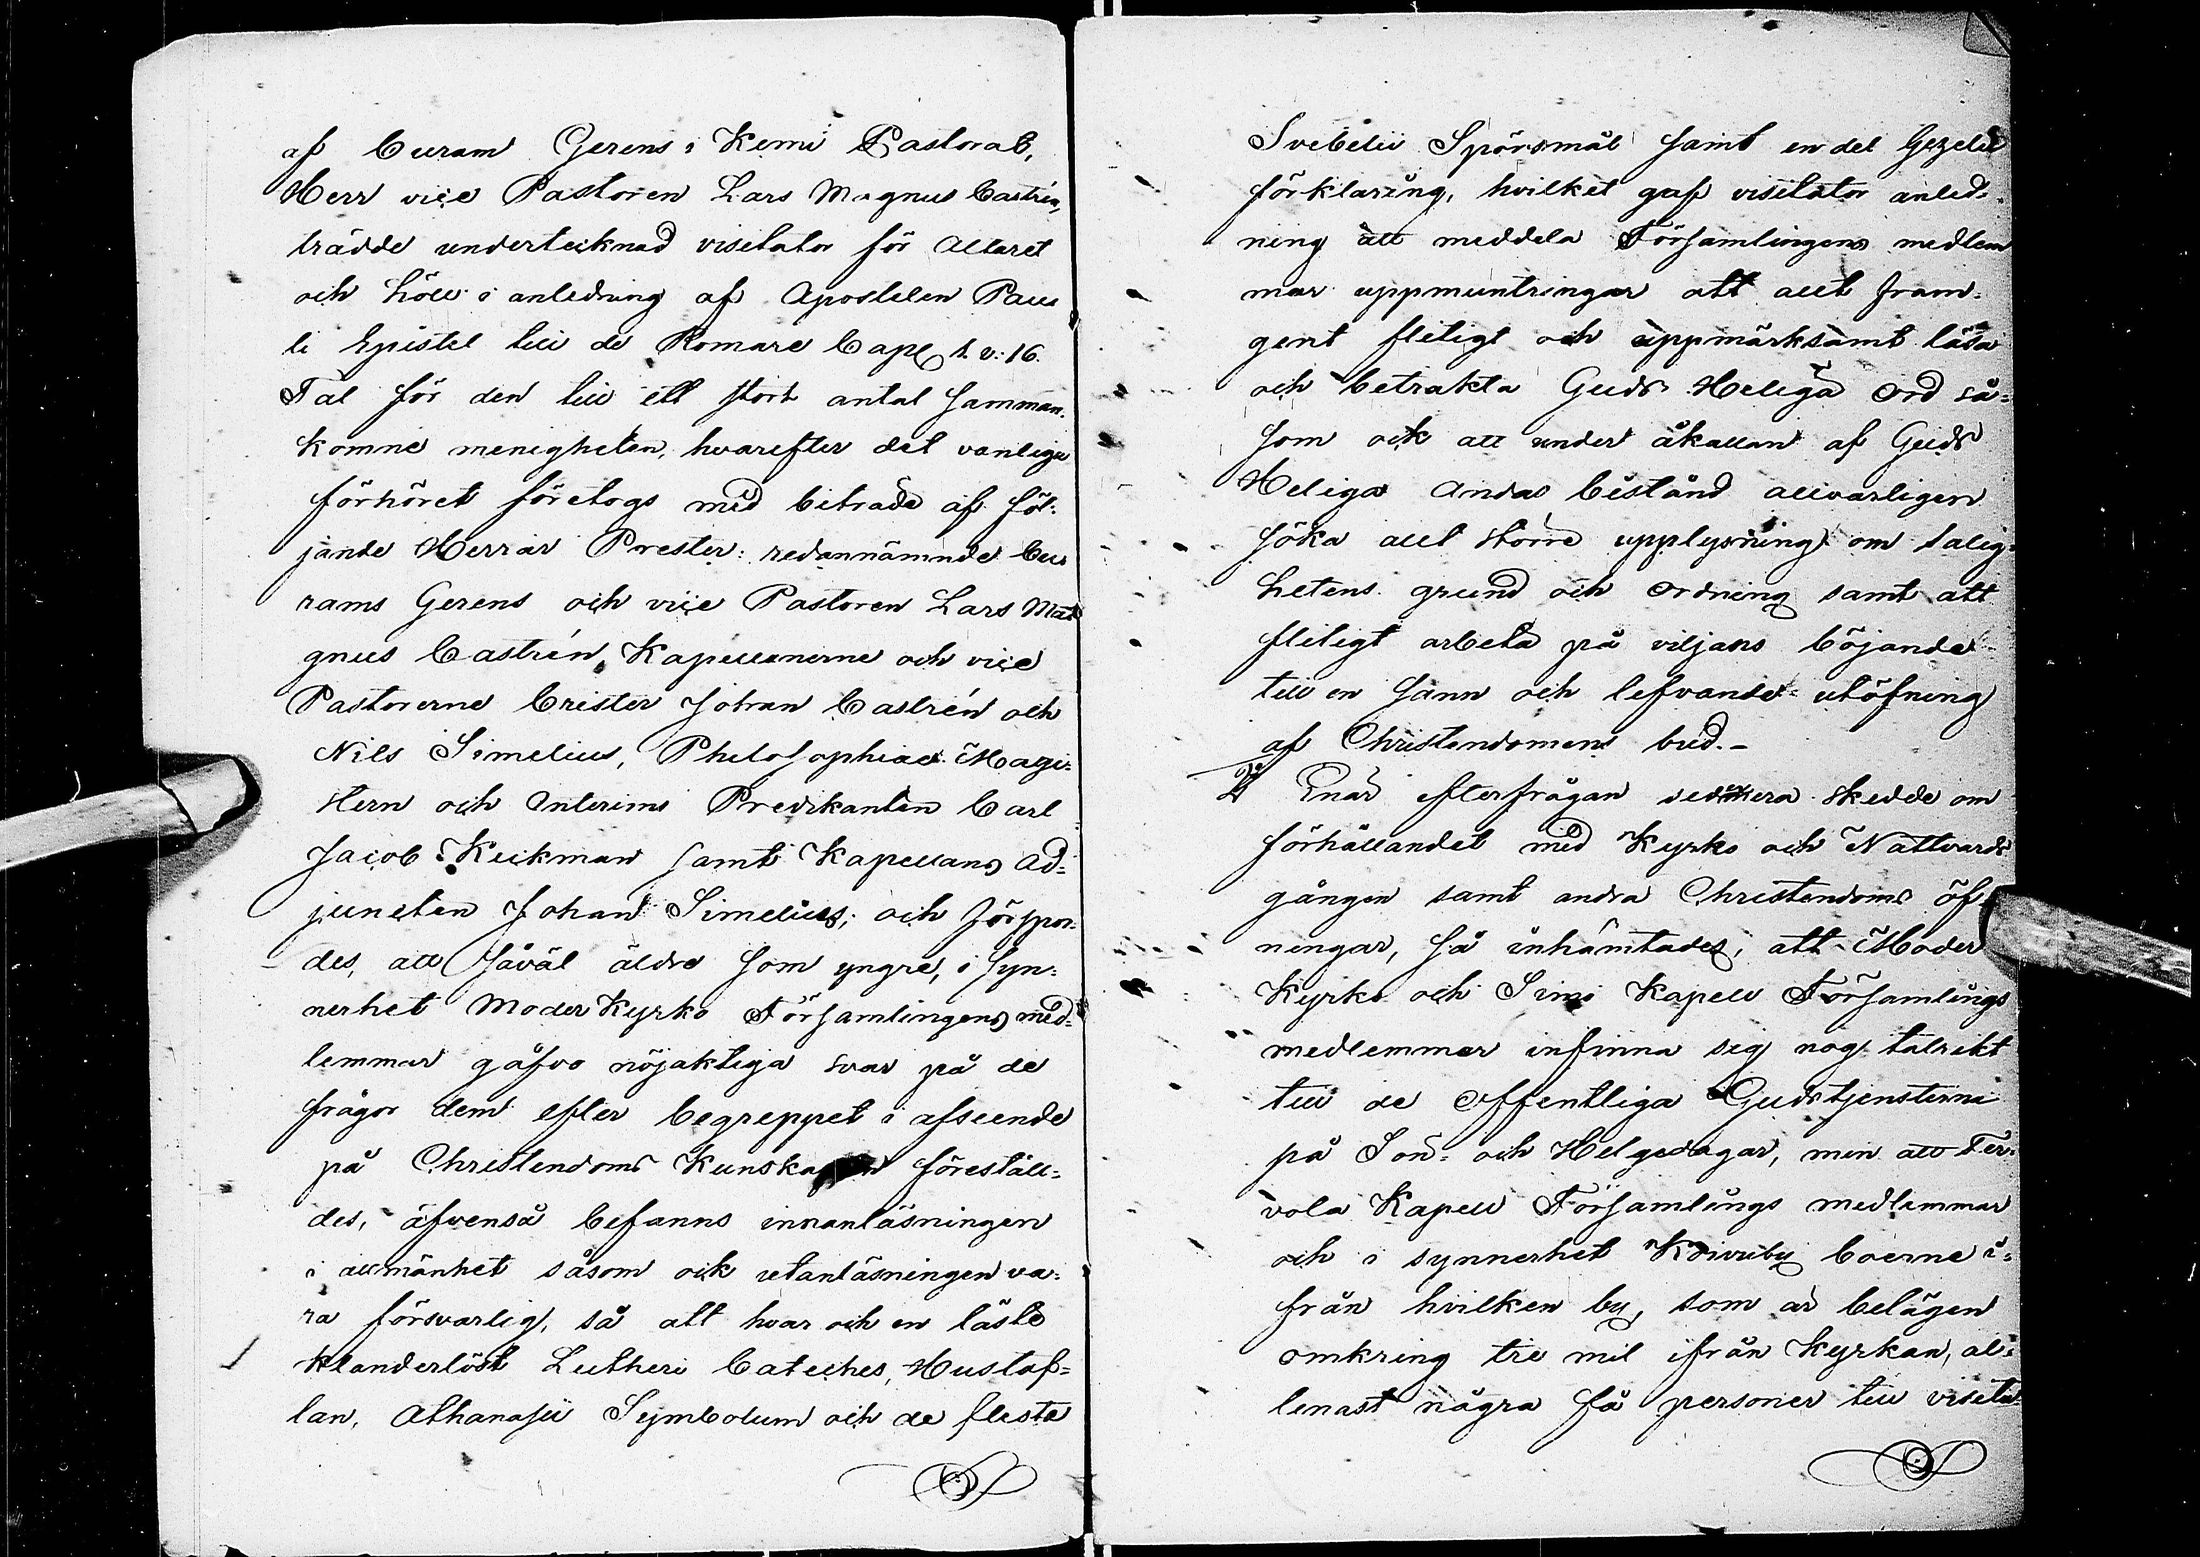 af Curam Gerens i Kemi Pastorat,
Herr vice Pastoren Lars Magnus Castrén,
trädde undertecknad visitator för Altaret
och höll i anledning af Apostelen Pau
li Epistel till de Romare Cap. 1 v: 16.
Tal för den till ett stort antal samman-
komne menigheten, hvarefter det vanliga
förhöret företogs med biträde af föl-
jande Herrar Prester: redannämnde Cu
rams Gerens och vice Pastoren Lars Ma
gnus Castrén, Kapellanerne och vice
Pastorerne Crister Johan Castrén och
Nils Simelius, Philosophiae Magi-
stern och Interims Predikanten Carl
Jacob Keckman samt Kapellans Ad-
juncten Johan Simelius; och förspor-
des, att såväl äldre som yngre, i syn-
nerhet Moder Kyrko Församlingens med-
lemmar gåfvo nöjaktiga svar på de
frågor dem efter begreppet i afseende
på Christendoms Kunskapen föreställ-
des, äfvenså befanns innanläsningen
i allmänhet såsom ock utanläsningen va-
ra försvarlig, så att hvar och en läste
klanderlöst Lutheri Cateches, Hustaf-
lan, Athanasii Symbolum och de flesta
Svebelii Spörsmål samt en del Gezelii
förklaring, hvilket gaf visitator anled-
ning att meddela Församlingens medlem
mar uppmuntringar att allt fram-
gent flitigt och uppmärksamt läsa
och betrakta Guds Heliga Ord så-
som ock att under åkallan af Guds
Heliga Andas bistånd allvarligen
söka allt större upplysning om salig-
hetens grund och ordning samt att
flitigt arbeta på viljans böjande
till en sann och lefvande utöfning
af Christendomens bud.-
2o Enär efterfrågan sedermera skedde om
förhållandet med Kyrko och Nattvards
gången samt andra Christendoms öf
ningar, så inhämtades, att Moder
Kyrko och Simo Kapell Församlings
medlemmar infinna sig nog talrikt
till de offentliga Gudstjensterne
på Sön- och Helgedagar, men att Ter-
vola Kapell Församlings medlemmar
och i synnerhet Koivuby boerne i-
från hvilken by, som är belägen
omkring tre mil ifrån Kyrkan, al-
lenast några få personer till visita-